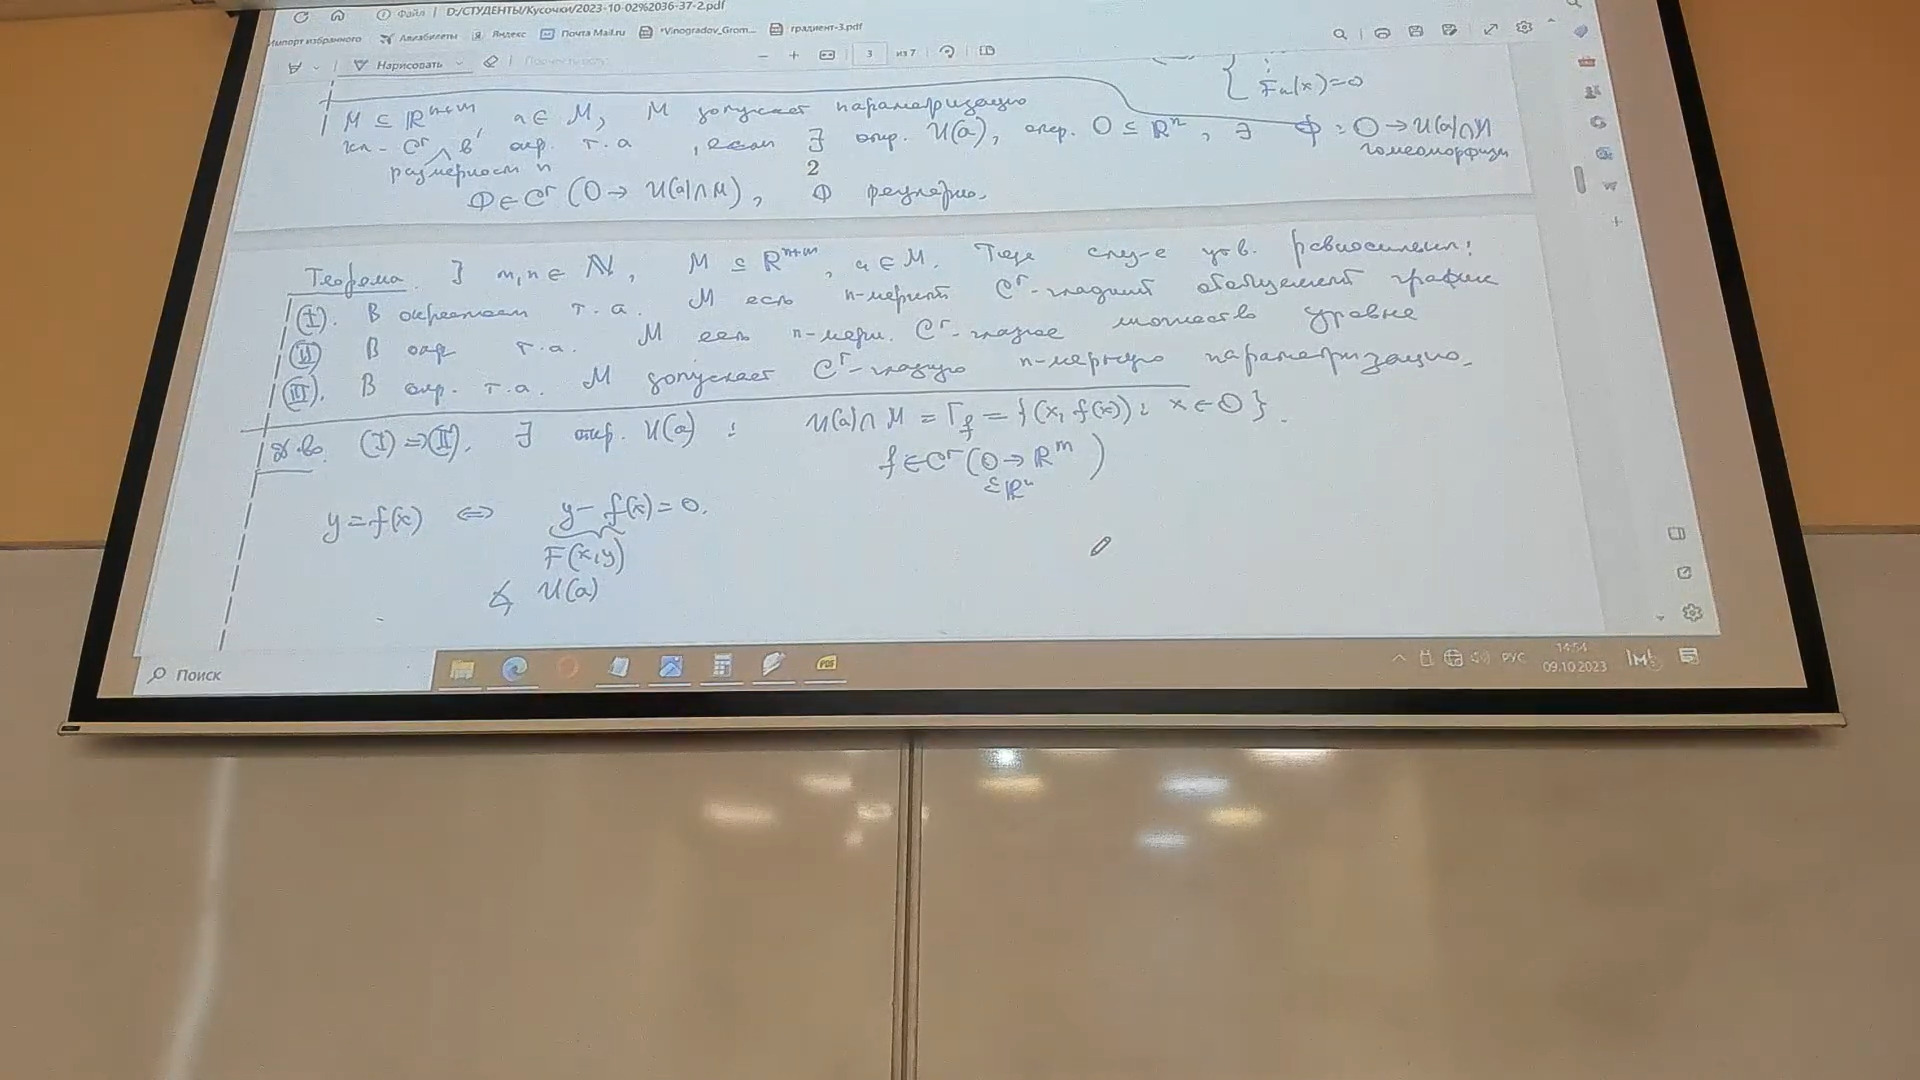 Файл | D:/СТУДЕНТЫ/Кусочки/2023-10-02%2036-37-2.pdf
Импорт избранного Авиабилеты Яндекс Почта Mail.ru *Vinogradov_Grom... градиент-3.pdf
Нарисовать 3 из 7
Fₙ(x)=0
M ⊆ ℝⁿ⁺ᵐ a ∈ M, M допускает параметризацию
кл-Cʳ в окр. т. a, если ∃ окр. U(a), откр. O ⊆ ℝⁿ, ∃ Φ: O → U(a)∩M
размерности n 2 гомеоморфизм
Φ ∈ Cʳ (O → U(a)∩M), Φ регулярно.
Теорема. ] m,n ∈ ℕ, M ⊆ ℝⁿ⁺ᵐ, a ∈ M. Тогда след-е утв. равносильны:
(I). В окрестности т. a. M есть n-мерный Cʳ-гладкий обобщённый график
(II) В окр т.a. M есть n-мерн. Cʳ-гладкое множество уровня
(III). В окр. т.a. M допускает Cʳ-гладкую n-мерную параметризацию.
Д-во. (I)⇒(II). ∃ окр. U(a): U(a)∩M = Γ_f = {(x, f(x)): x ∈ O}.
f ∈ Cʳ(O → ℝᵐ)
⊆ℝⁿ
y=f(x) ⇔ y−f(x)=0.
F(x,y)
∡ U(a)
Поиск
РУС 14:54
09.10.2023